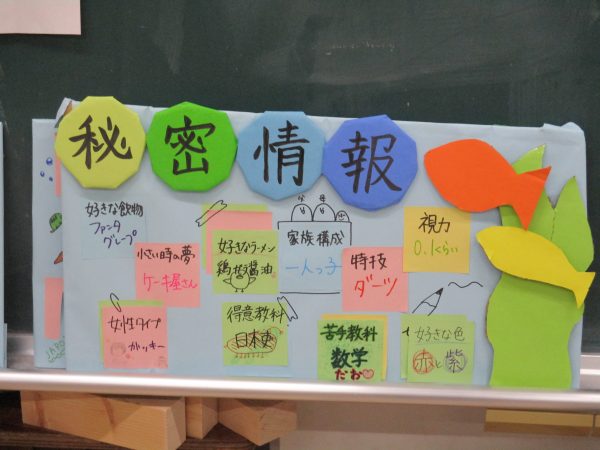 秘密情報
好きな飲物
ファンタ
グループ
小さい時の夢
ケーキ屋さん
好きなラーメン
鶏ガラ醤油
家族構成
一人っ子
特技
ダーツ
視力
0.1くらい
女性タイプ
ガッキー
得意教科
日本史
苦手教科
数学
だお♡
好きな色
赤と紫